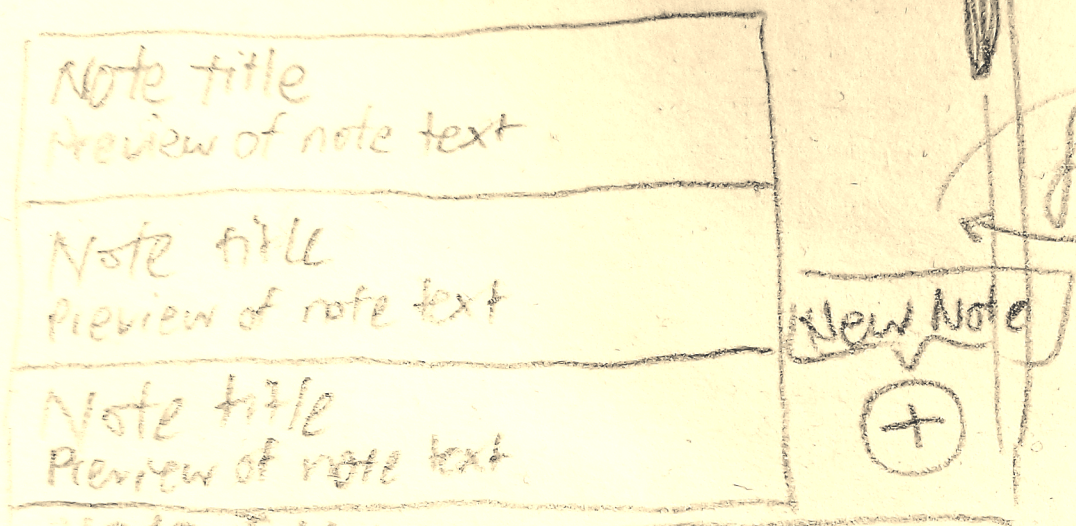 Note title
Preview of note text
Note title
Preview of note text
Note title
Preview of note text
New Note
+